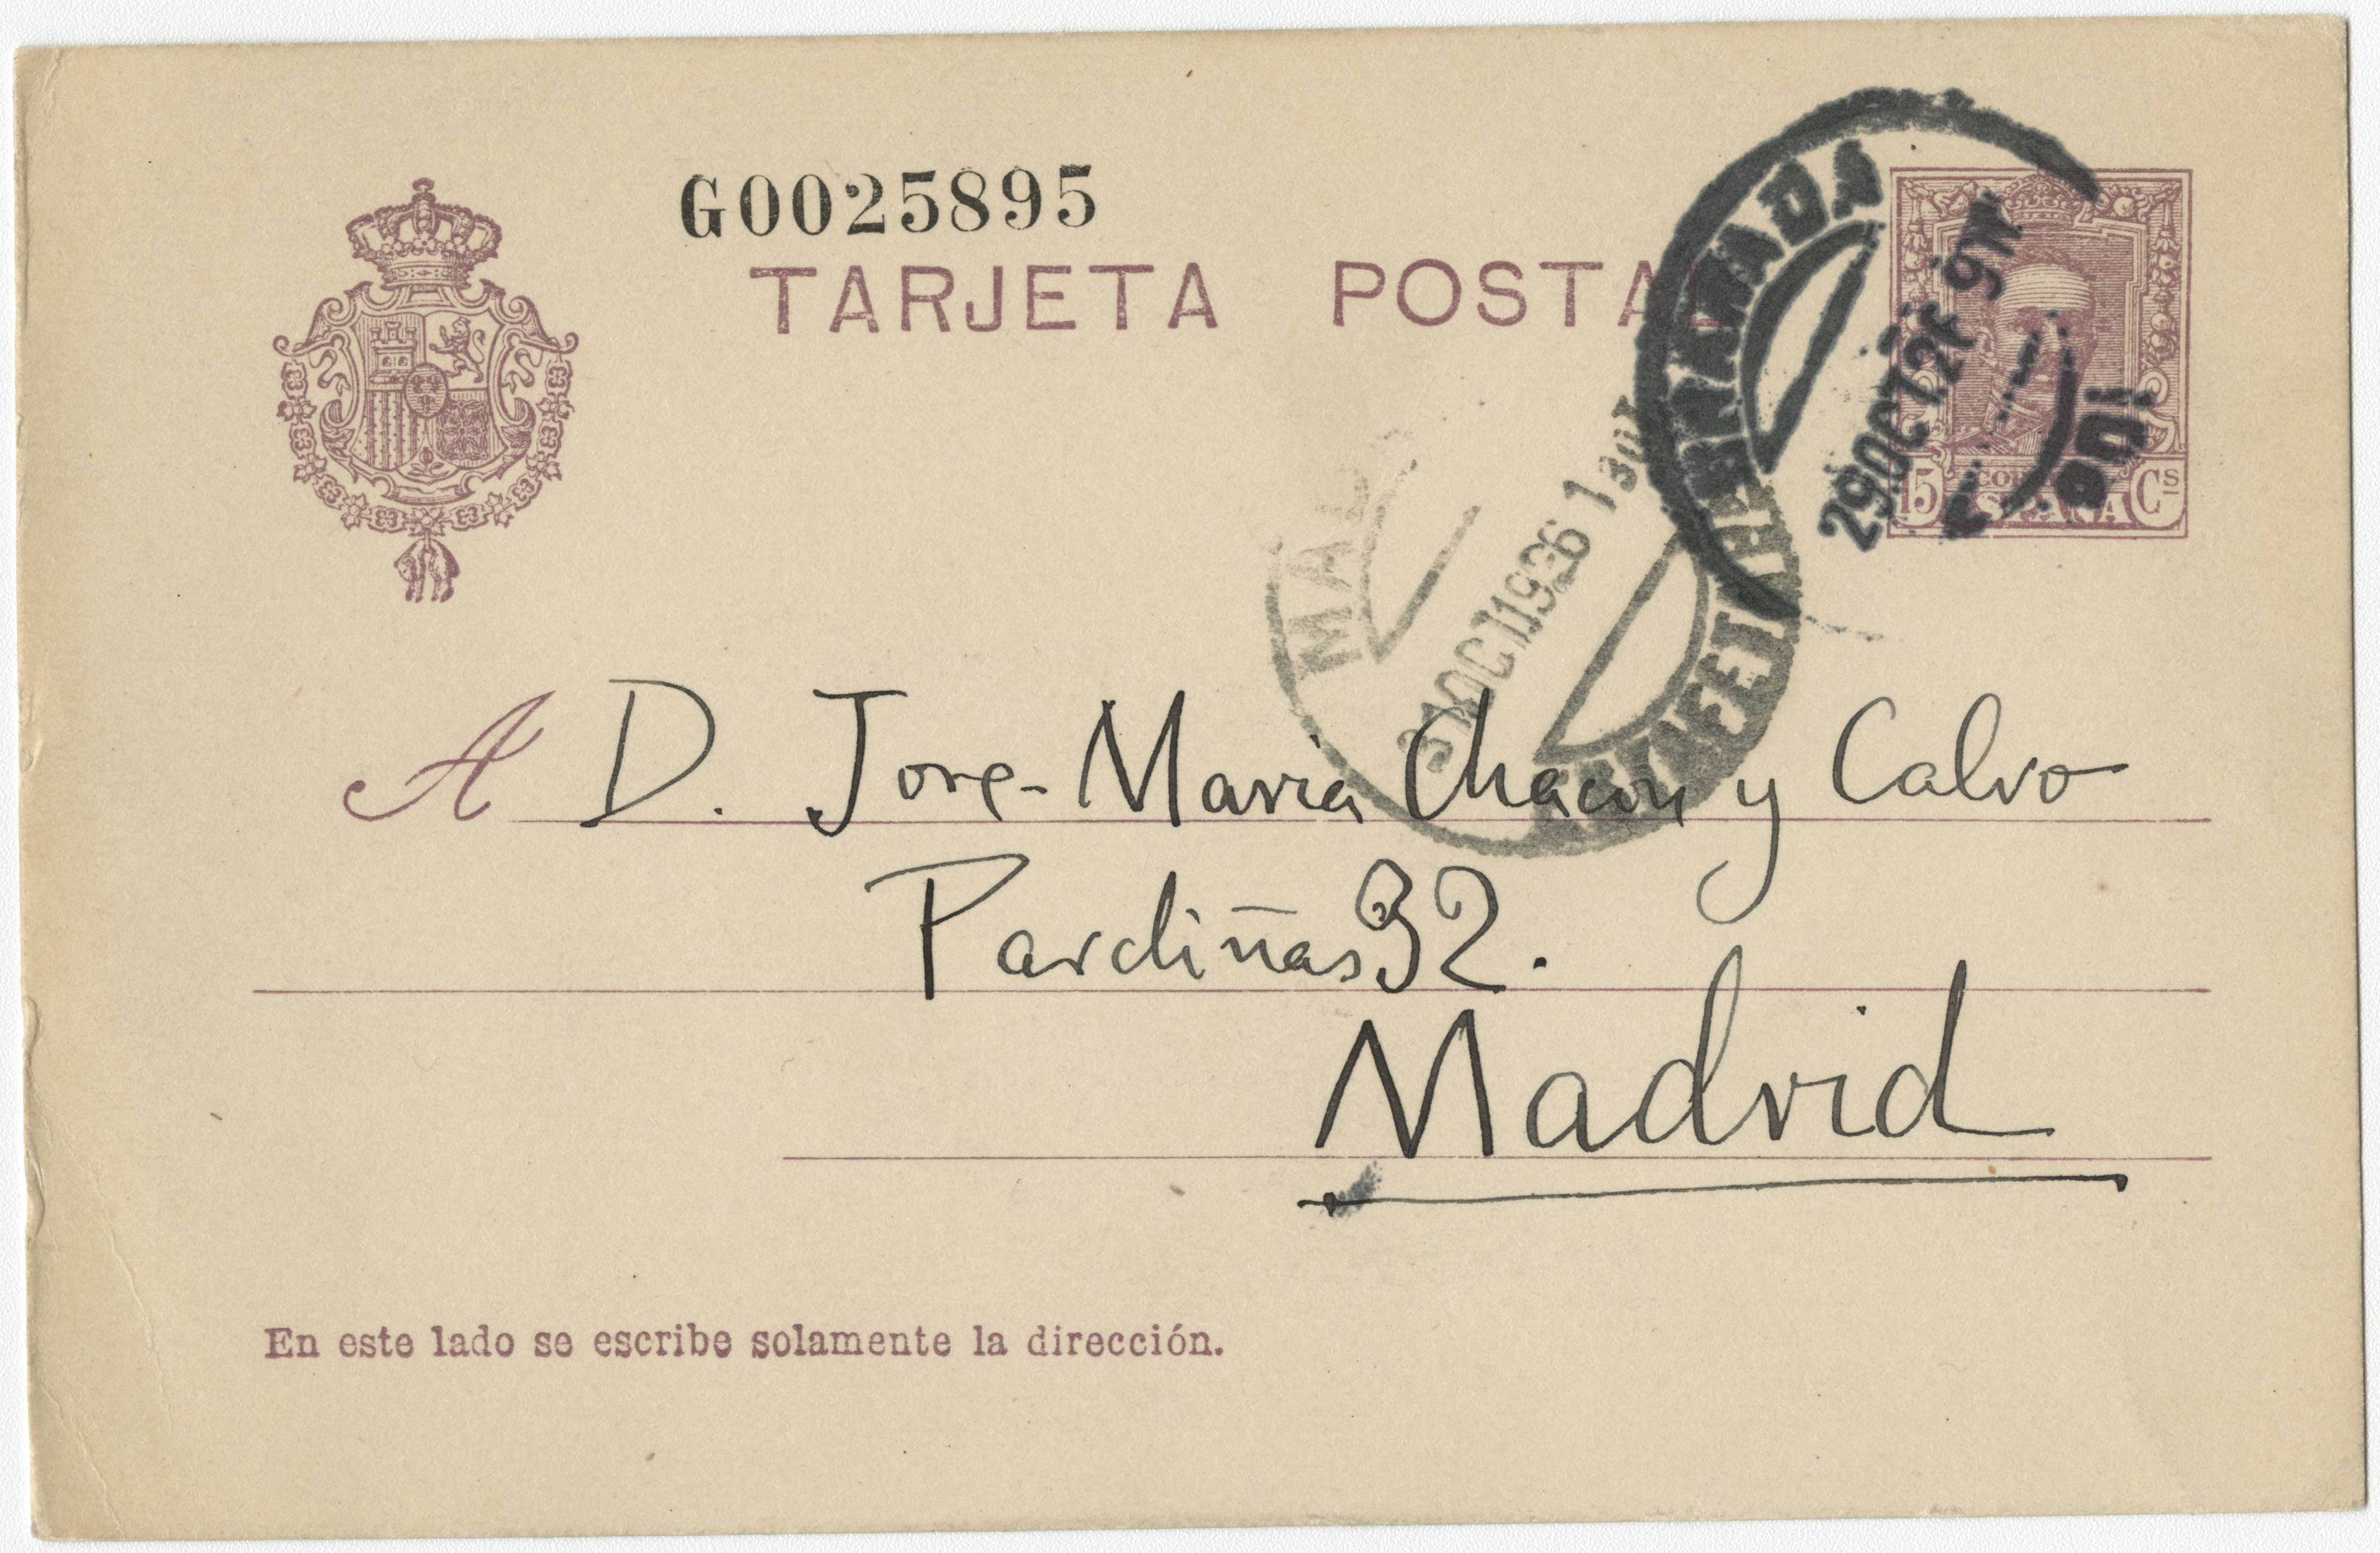 G0025895
TARJETA POSTAL
GRANADA
29 OCT 2
15 Cs
ESPAÑA
31 OCT 1926 1
A D. Jose-Maria Chacon y Calvo
Pardiñas 32.
Madrid
En este lado se escribe solamente la dirección.